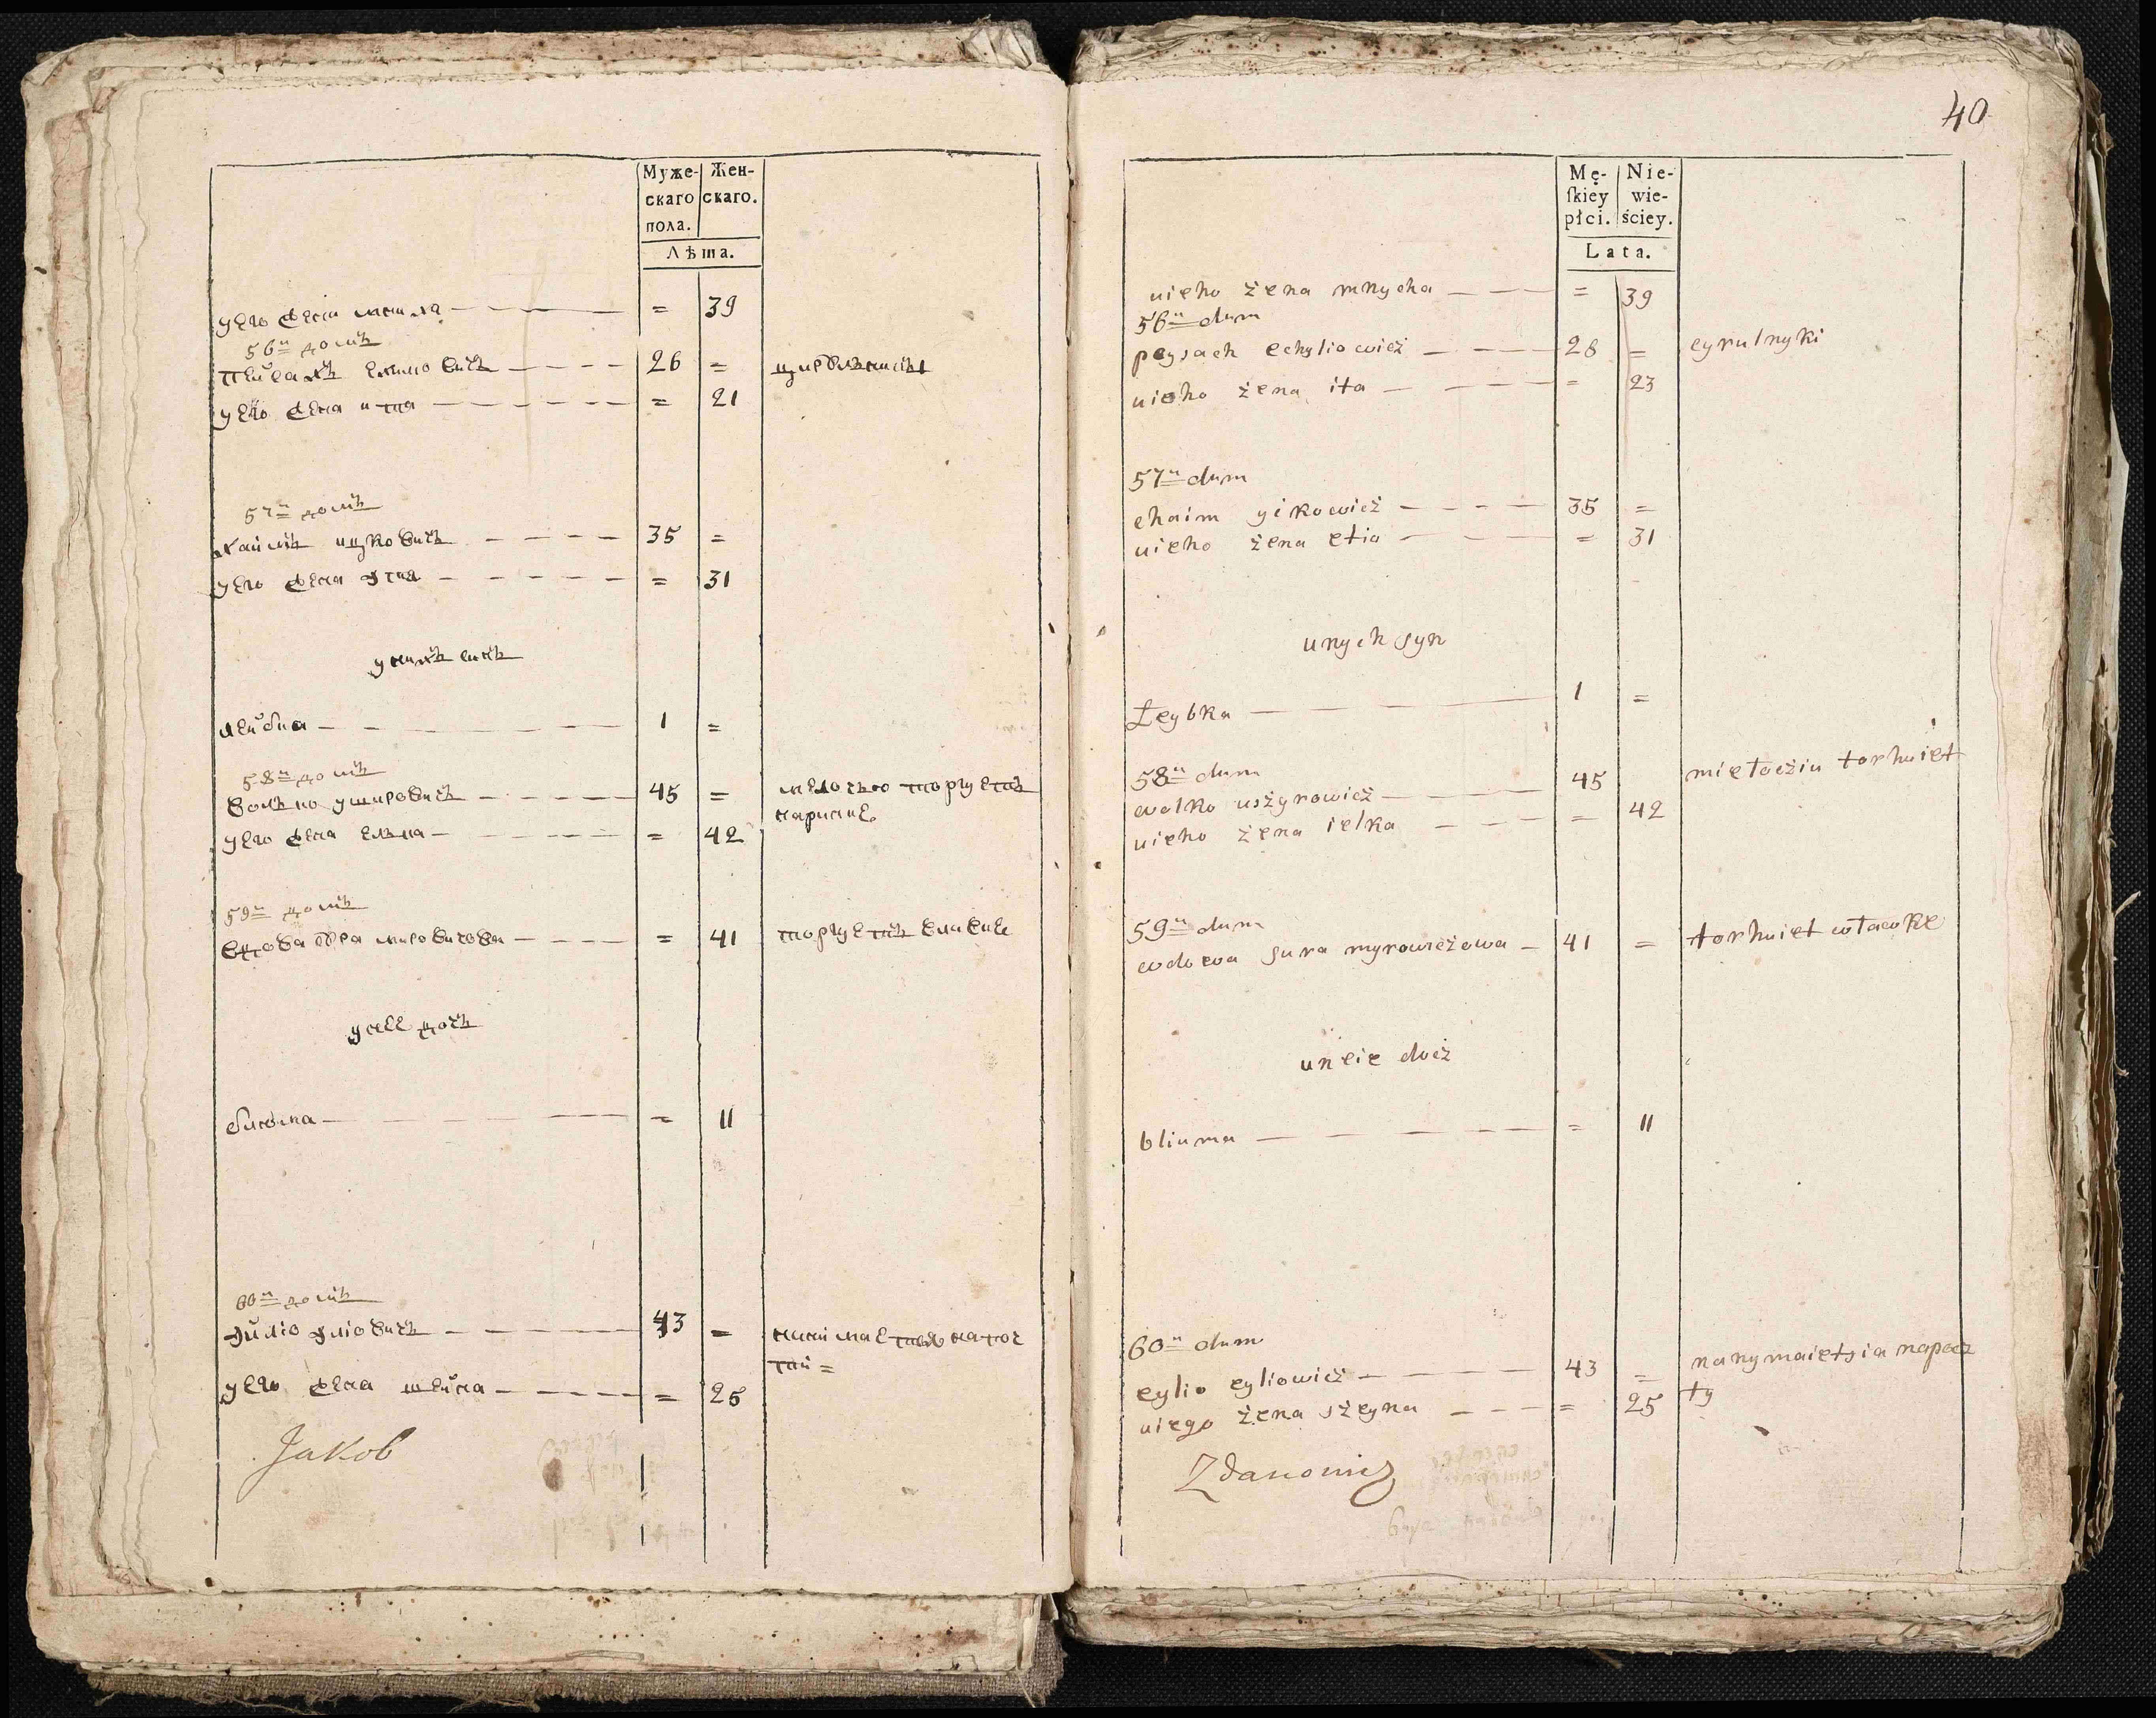 Муже-
скаго
пола.
Жен-
скаго.
Лѣта.
его жена мниха — = 39
56й домъ
пейсахъ ехилиовичъ — 26 = цирблъники
уего жена ита — = 21
57й домъ
хаимъ ицковичъ — 35 =
уего жена этя — = 31
унихъ синъ
лейбка — 1 =
58й домъ
волько уширович — 45 = мелочью торгуетъ
наринке
уего жена елька — = 42
59й домъ
вдова сора мировичова — = 41 торгуетъ влавке
унее дочъ
блюма — = 11
60й домъ
эйліо эліовичъ — 43 = нанимается напоч
тий =
уего жена шейна — = 25
Jakob
40
Mę-
ſkiey
płci.
Nie-
wie-
ściey.
Lata.
uieho żena mnycha — = 39
56ⁿ dum
peysach echyliowicż — 26 = cyrulnyki
uieho żena ita — = 23
57ⁿ dum
chaim yckowicż — 35 =
uieho żena etia — = 31
unych syn
Leybka — 1 =
58ⁿ dum
wolko uszyrowicż — 45 miełocżiu torhuiet
uieho żena ielka — = 42
59ⁿ dum
wdowa sura myrowicżowa — 41 = torhuiet wławke
uneie docż
bliuma — = 11
60ⁿ dum
eylio eyliowicż — 43 = nanymaietsia napocz
ty
uiego żena szeyna — = 25
Zdanowicz